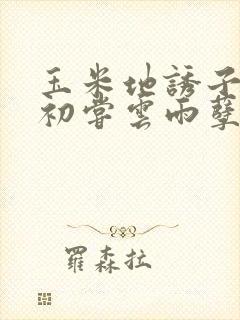 玉米地誘子
初嘗雲雨孽
羅森拉